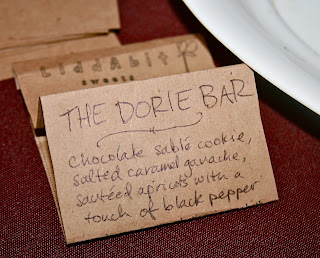 LiddAbit
sweets
THE DORIE BAR
chocolate sablé cookie,
salted caramel ganache,
sautéed apricots with a
touch of black pepper